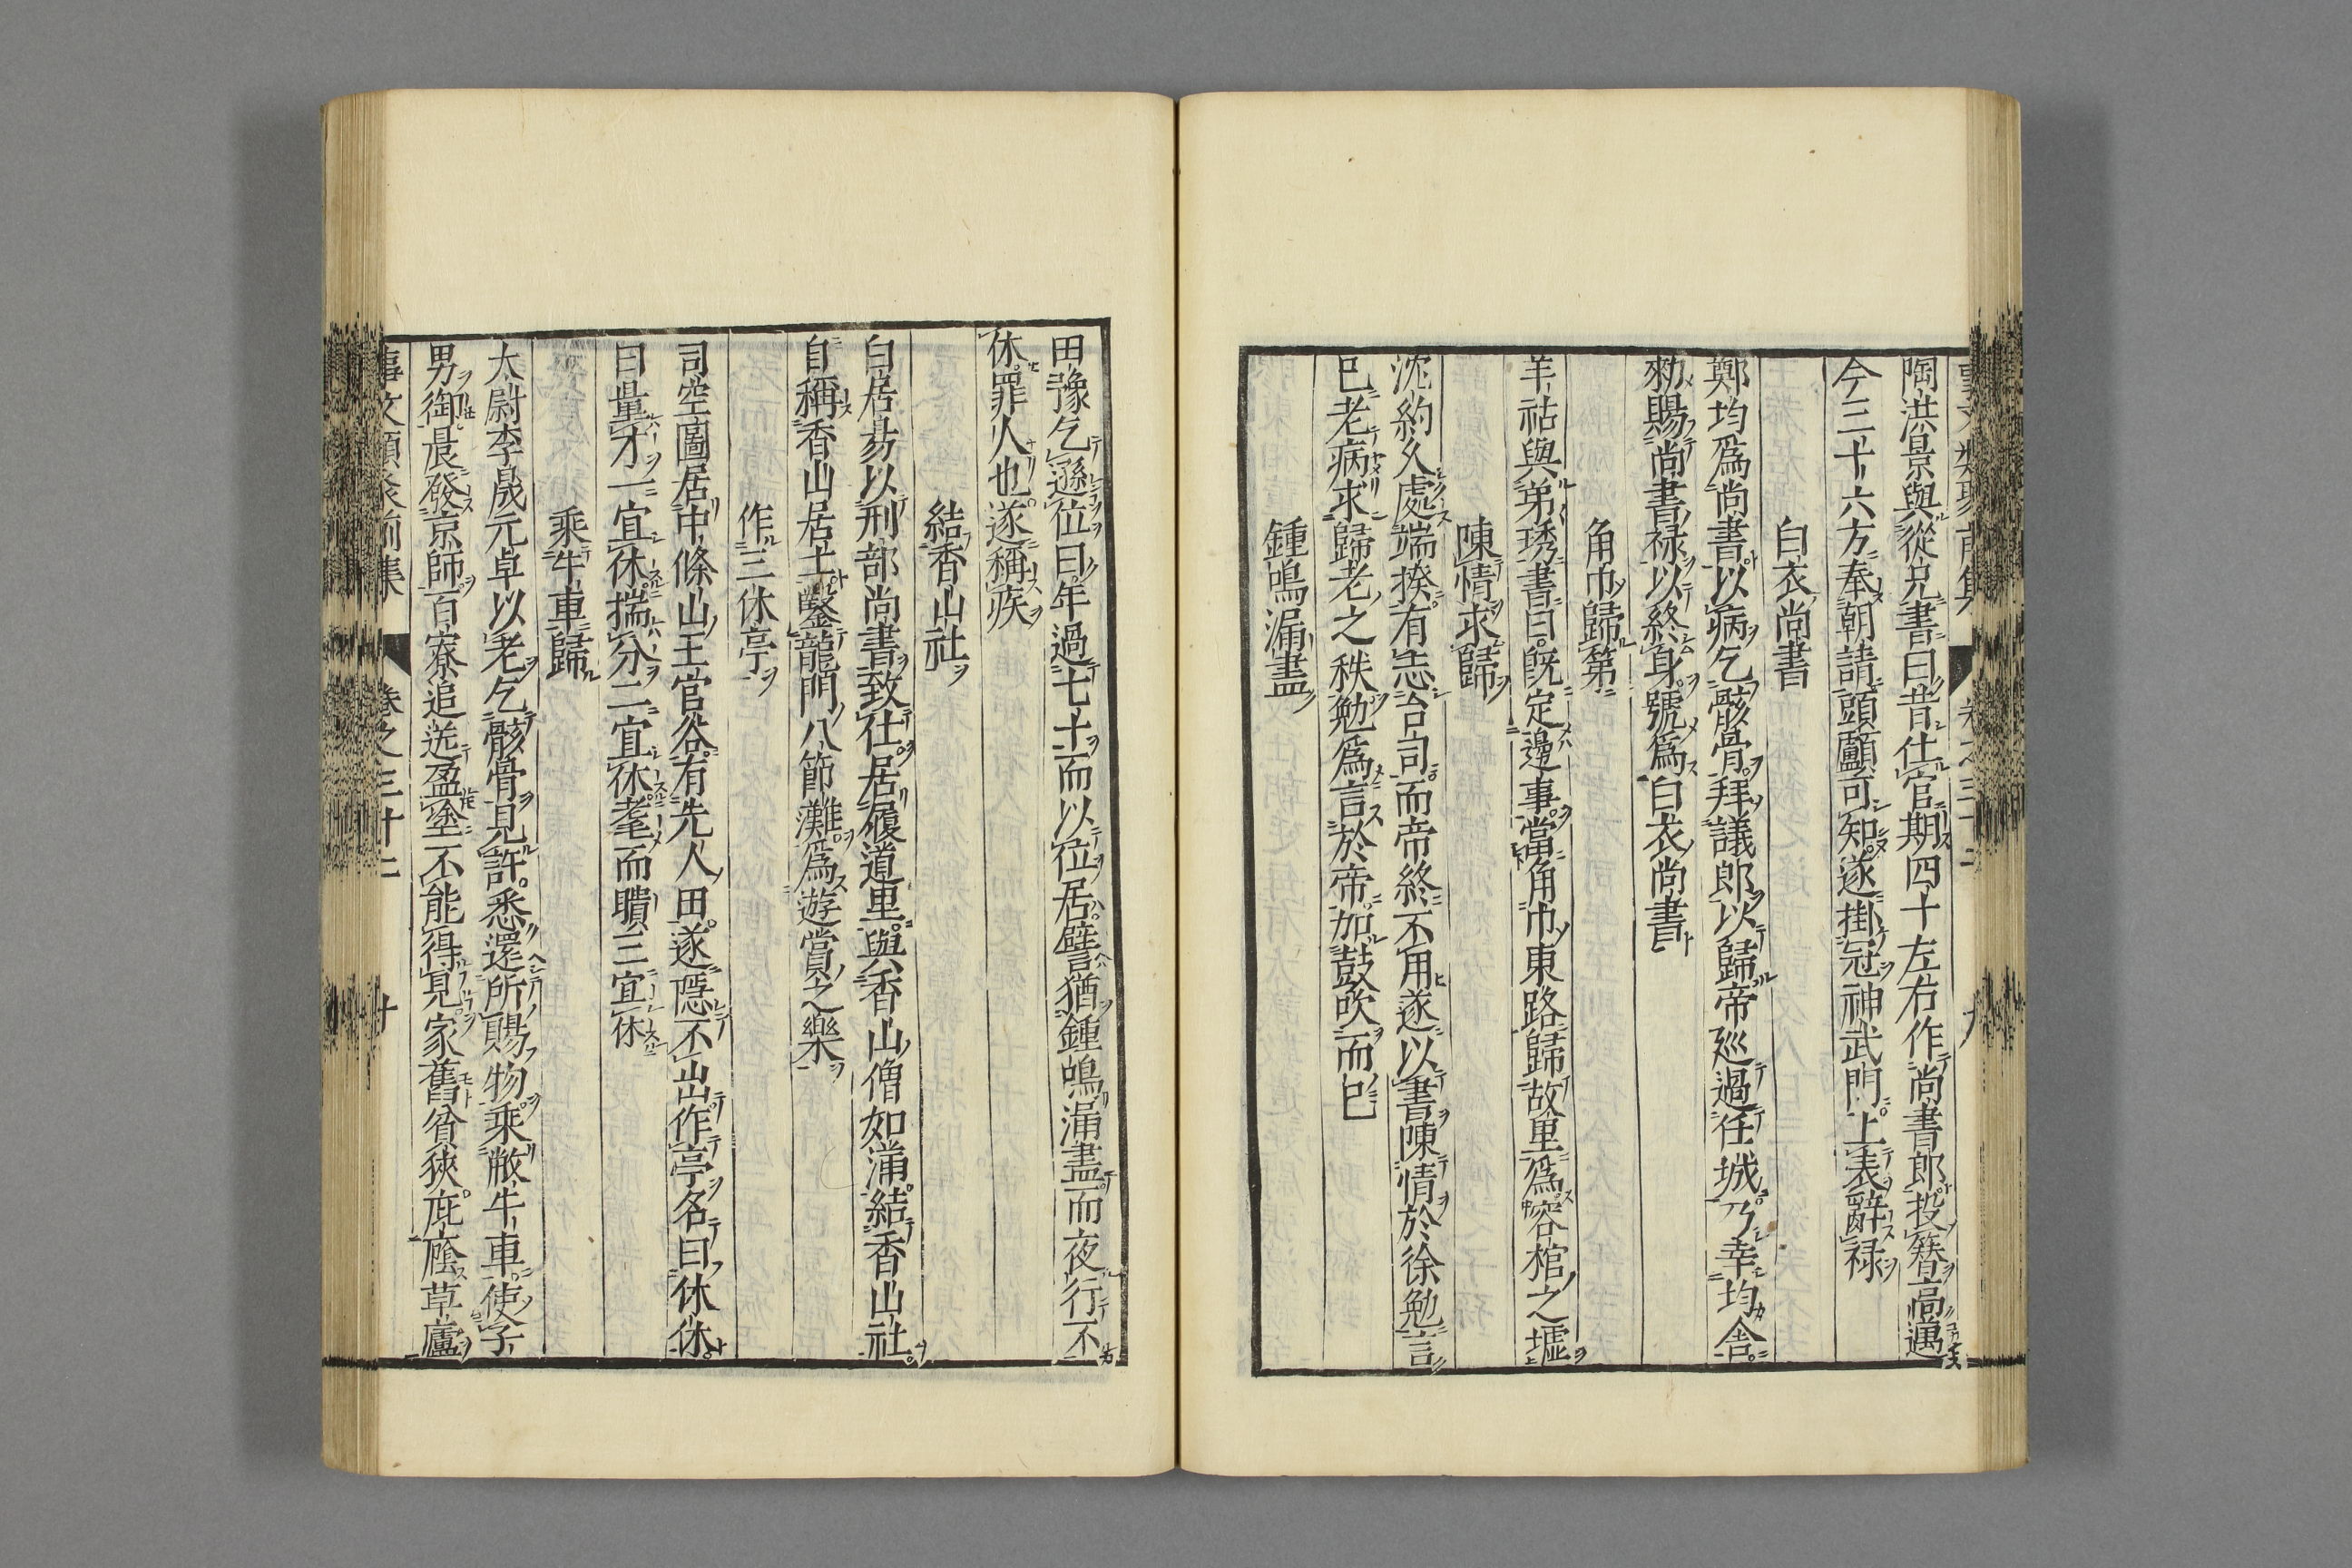 陶洪景與從兄書曰昔仕官期四十左右作尚書郎投簪高邁
今三十六方奉朝請頭顱可知遂掛冠神武門上表辭禄
白衣尚書
鄭均爲尚書以病乞骸骨拜議郎以歸帝廵過任城乃幸均舎
勑賜尚書禄以終身號爲白衣尚書
角巾歸第
羊祜與弟琇書曰既定邊事當角巾東路歸故里爲容棺之墟
陳情求歸
沈約久處端揆有志台司而帝終不用遂以書陳情於徐勉言
已老病求歸老之秩勉爲言於帝加鼓吹而已
鍾鳴漏盡
田豫乞遜位曰年過七十而以位居譬猶鍾鳴漏盡而夜行不
休罪人也遂稱疾
結香山社
白居易以刑部尚書致仕居履道里與香山僧如滿結香山社
自稱香山居士鑿龍門八節灘爲遊賞之樂
作三休亭
司空圖居中條山王官谷有先人田遂隱不出作亭名曰休休
曰量才一宜休揣分二宜休耄而聵三宜休
乘牛車歸
太尉李晟元卓以老乞骸骨見許悉還所賜物乘敝牛車使子
男御晨發京師百寮追送盈塗不能得見家舊貧狹庇廕草廬
事文類聚前集 卷之三十二 十